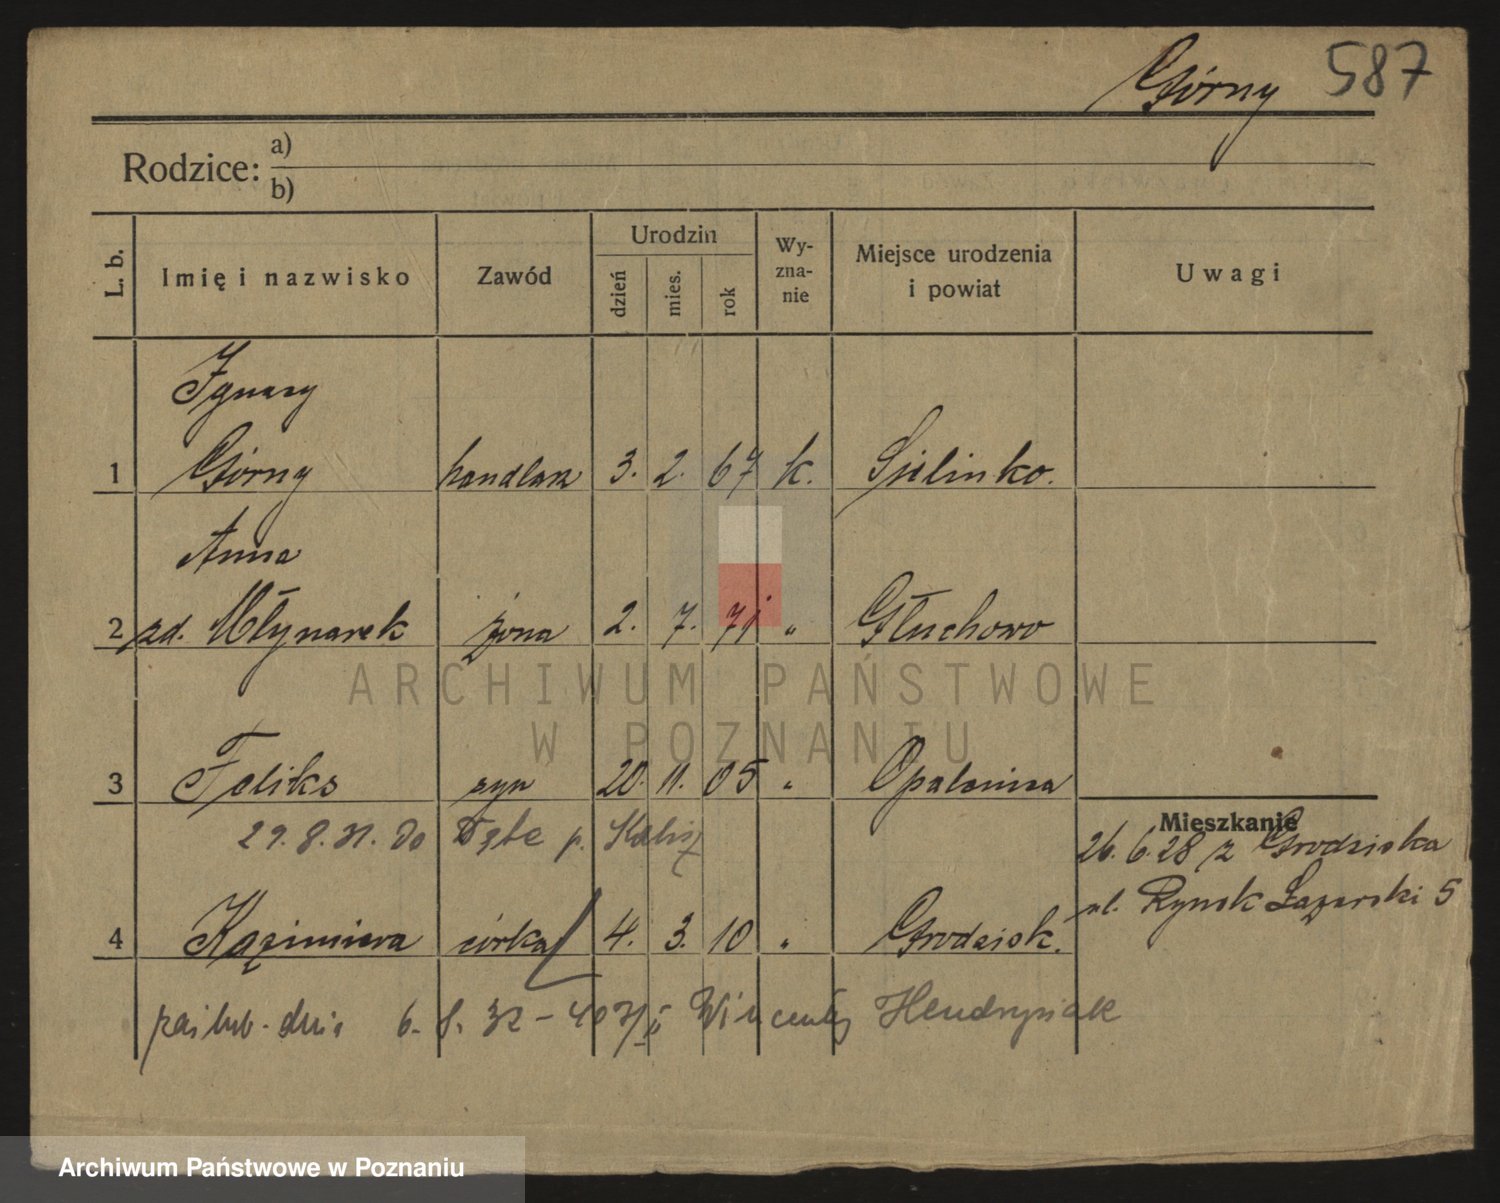 Górny 587
Rodzice: a)
b)
L. b. Imię i nazwisko Zawód Urodzin dzień mies. rok Wy-zna-nie Miejsce urodzenia i powiat Uwagi
Ignacy
1 Górny handlarz 3. 2. 67 k. Sielinko.
Anna
2 zd. Młynarek żona 2. 7. 71 " Głuchowo
ARCHIWUM PAŃSTWOWE
W POZNANIU
3 Feliks syn 20. 11. 05 " Opalenica
Mieszkanie
29. 8. 31. do p. Kalisz
26. 6. 28 z Grodziska
ul. Rynek Łazarski 5
4 Kazimiera córka 4. 3. 10 " Grodzisk.
zaślub. dnia 6. 8. 32 - Wincenty Hendrysiak
Archiwum Państwowe w Poznaniu